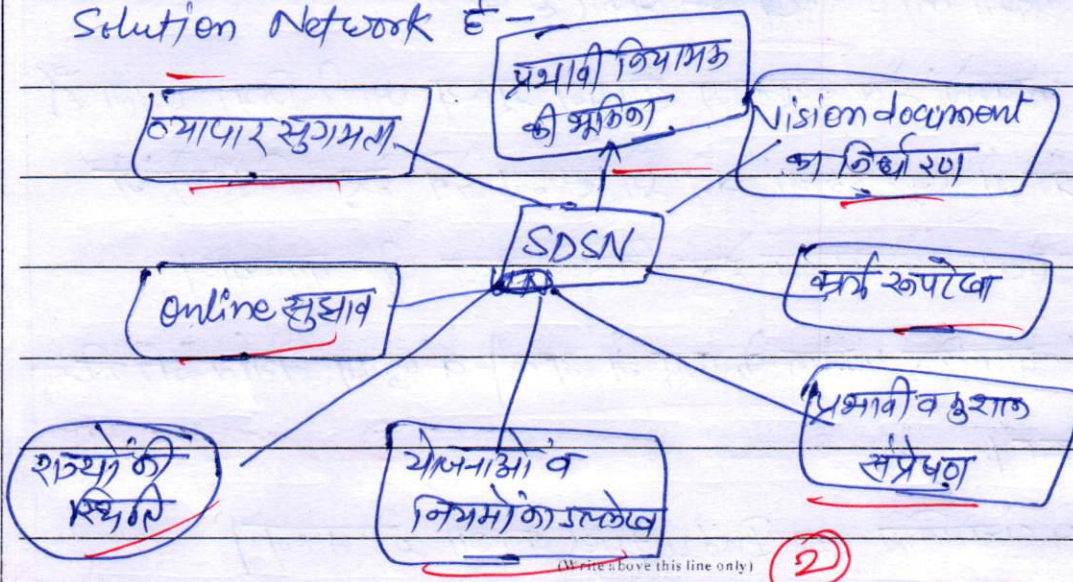 Solution Network है -
प्रभावी नियामक
की भूमिका
व्यापार सुगमता
Vision document
का निर्धारण
SDSN
Online सुझाव
कार्य रूपरेखा
प्रभावी व कुशल
संप्रेषण
राज्यों की
स्थिति
योजनाओं व
नियमों का उल्लेख
(Write above this line only)
2